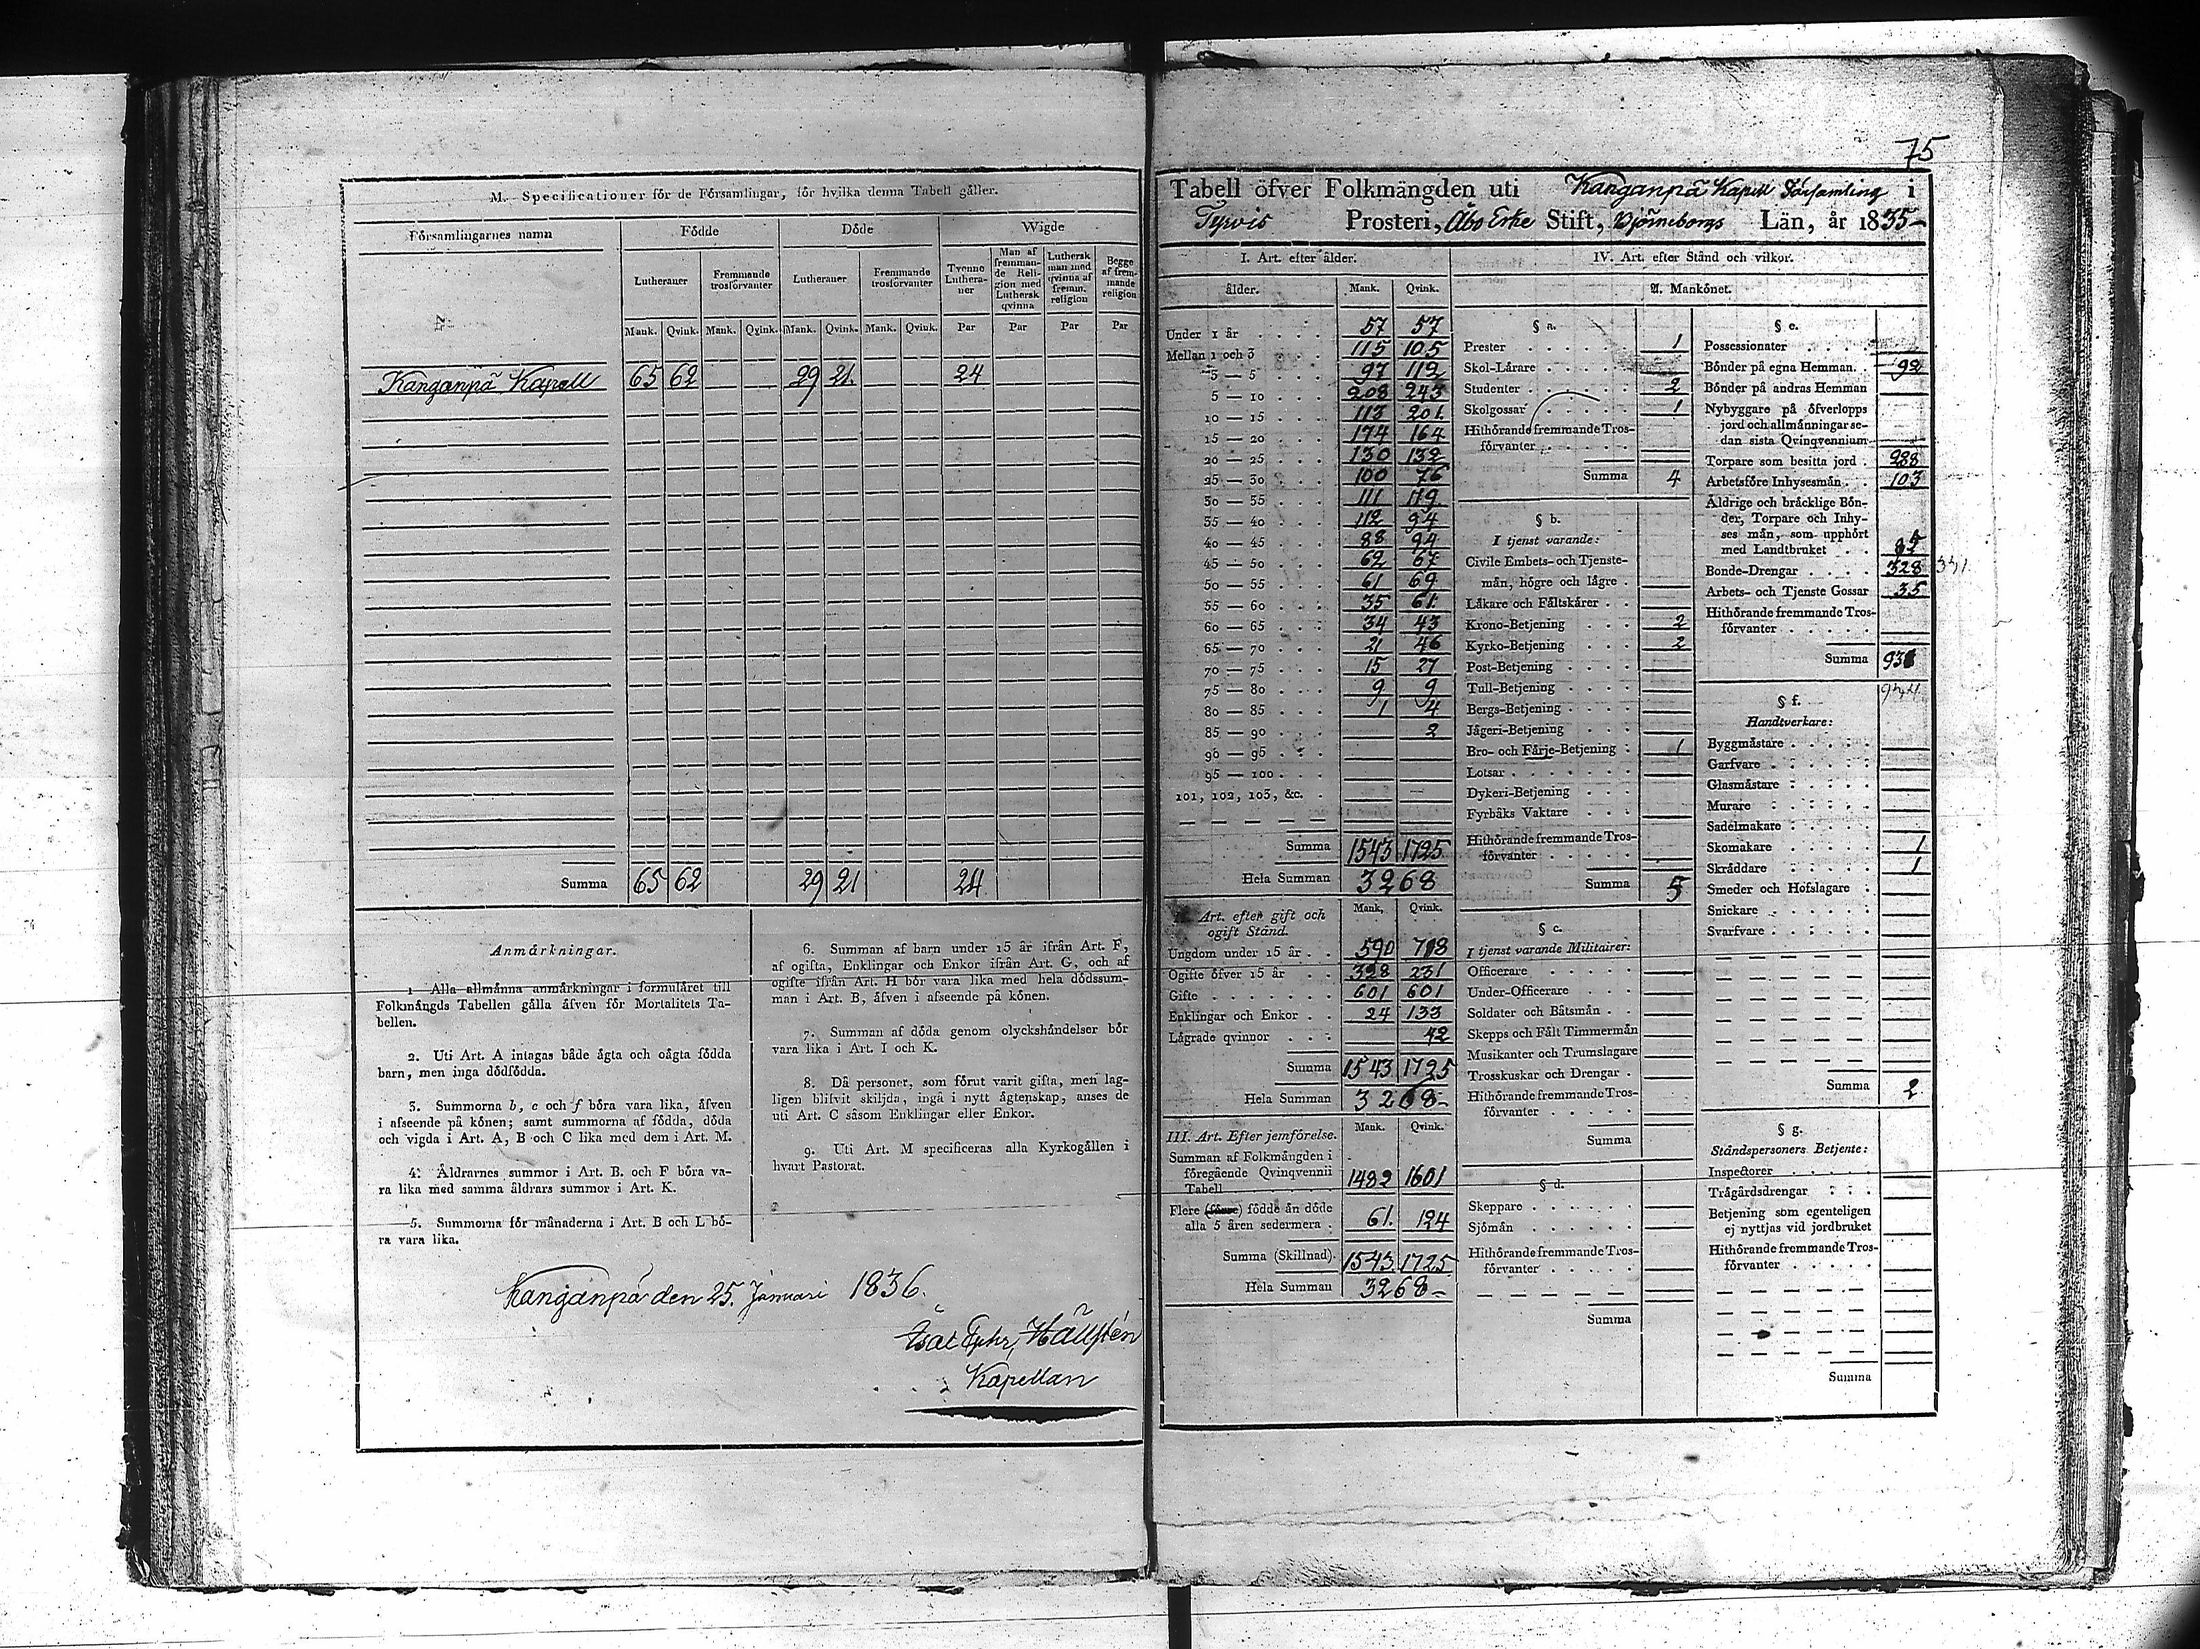 M. Specificationer för de Församlingar, för hvilka denna Tabell gäller.
Församlingarnes namn
Födde
Döde
Wigde
Lutheraner
Fremmande trosförvanter
Lutheraner
Fremmande trosförvanter
Tvenne Lutheraner
Man af fremmande Religion med Luthersk qvinna
Luthersk man med qvinna af fremm. religion
Begge af fremmande religion
Mank. Qvink. Mank. Qvink. Mank. Qvink. Mank. Qvink. Par Par Par Par
Kanganpä Kapell 65 62 29 21. 24
Summa 65 62 29 21 24
Anmärkningar.
1 Alla allmänna anmärkningar i formuläret till
Folkmängds Tabellen gälla äfven för Mortalitets Ta-
bellen.
2. Uti Art. A intagas både ägta och oägta födda
barn, men inga dödfödda.
3. Summorna b, e och f böra vara lika, äfven
i afseende på könen; samt summorna af födda, döda
och vigda i Art. A, B och C lika med dem i Art. M.
4. Åldrarnes summor i Art. B. och F böra va-
ra lika med samma åldrars summor i Art. K.
5. Summorna för månaderna i Art. B och L bö-
ra vara lika.
6. Summan af barn under 15 år ifrån Art. F,
af ogifta, Enklingar och Enkor ifrån Art. G, och af
ogifte ifrån Art. H bör vara lika med hela dödssum-
man i Art. B, äfven i afseende på könen.
7. Summan af döda genom olyckshändelser bör
vara lika i Art. I och K.
8. Då personer, som förut varit gifta, men lag-
ligen blifvit skiljda, ingå i nytt ägtenskap, anses de
uti Art. C såsom Enklingar eller Enkor.
9. Uti Art. M specificeras alla Kyrkogällen i
hvart Pastorat.
Kanganpä den 25. Januari 1836.
Isac Ephr. Hällstén
Kapellan
75
Tabell öfver Folkmängden uti Kanganpä Kapell Församling i
Tyrvis Prosteri, Åbo Erke Stift, Björneborgs Län, år 1835-
I. Art. efter ålder.
ålder. Mank. Qvink.
Under 1 år 57 57
Mellan 1 och 3 115 105
3 — 5 97 112
5 — 10 208 243
10 — 15 113 201.
15 — 20 174 164
20 — 25 130 132
25 — 30 100 76
30 — 35 111 119
35 — 40 112 94
40 — 45 88 94
45 — 50 62 67
50 — 55 61 69
55 — 60 35 61.
60 — 65 34 43
65 — 70 21 46
70 — 75 15 27
75 — 80 9 9
80 — 85 1 4
85 — 90 2
90 — 95
95 — 100
101, 102, 103, &c.
Summa 1543 1725
Hela Summan 3268
II. Art. efter gift och
ogift Stånd. Mank, Qvink.
Ungdom under 15 år 590 718
Ogifte öfver 15 år 328 231
Gifte 601 601
Enklingar och Enkor 24 133
Lägrade qvinnor 42
Summa 1543 1725
Hela Summan 3268-
III. Art. Efter jemförelse. Mank. Qvink.
Summan af Folkmängden i
föregående Qvinqvennii
Tabell 1482 1601
Flere (färre) födde än döde
alla 5 åren sedermera 61. 124
Summa (Skillnad). 1543. 1725
Hela Summan 3268-
IV. Art. efter Stånd och vilkor.
A. Mankönet.
§ a.
Prester 1
Skol-Lärare
Studenter 2
Skolgossar 1
Hithörande fremmande Tros-
förvanter
Summa 4
§ b.
I tjenst varande:
Civile Embets- och Tjenste-
män, högre och lägre
Läkare och Fältskärer
Krono-Betjening 2
Kyrko-Betjening 2
Post-Betjening
Tull-Betjening
Bergs-Betjening
Jägeri-Betjening
Bro- och Färje-Betjening 1
Lotsar
Dykeri-Betjening
Fyrbåks Vaktare
Hithörande fremmande Tros-
förvanter
Summa 5
§ c.
I tjenst varande Militairer:
Officerare
Under-Officerare
Soldater och Båtsmän
Skepps och Fält Timmermän
Musikanter och Trumslagare
Trosskuskar och Drengar
Hithörande fremmande Tros-
förvanter
Summa
§ d.
Skeppare
Sjömän
Hithörande fremmande Tros-
förvanter
Summa
§ e.
Possessionater
Bönder på egna Hemman. 92
Bönder på andras Hemman
Nybyggare på öfverlopps
jord och allmänningar se-
dan sista Qvinqvennium
Torpare som besitta jord 288
Arbetsföre Inhysesmän 103
Åldrige och bräcklige Bön-
der, Torpare och Inhy-
ses män, som upphört
med Landtbruket
Bonde-Drengar 328
Arbets- och Tjenste Gossar 35
Hithörande fremmande Tros-
förvanter
Summa
§ f.
Handtverkare:
Byggmästare
Garfvare
Glasmästare
Murare
Sadelmakare
Skomakare 1
Skräddare 1
Smeder och Hofslagare
Snickare
Svarfvare
Summa 2
§ g.
Ståndspersoners Betjente:
Inspectorer
Trägårdsdrengar
Betjening som egenteligen
ej nyttjas vid jordbruket
Hithörande fremmande Tros-
förvanter
Summa